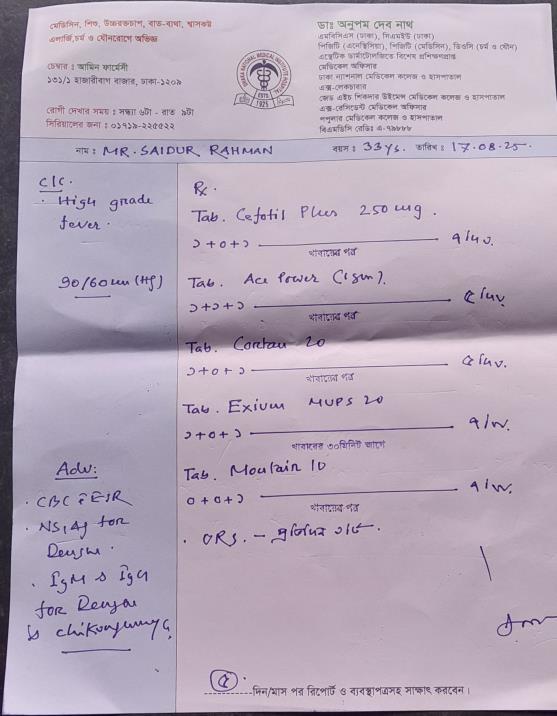 মেডিসিন, শিশু, উচ্চরক্তচাপ, বাত-ব্যথা, শ্বাসকষ্ট
এলার্জি,চর্ম ও যৌনরোগে অভিজ্ঞ
চেম্বার : আমিন ফার্মেসী
১৩১/১ হাজারীবাগ বাজার, ঢাকা-১২০৯
রোগী দেখার সময় : সন্ধ্যা ৬টা - রাত ৯টা
সিরিয়ালের জন্য : ০১৭১৯-২২৫৫২২
DHAKA NATIONAL MEDICAL INSTITUTE HOSPITAL
ESTD
1925
ডাঃ অনুপম দেব নাথ
এমবিবিএস (ঢাকা), সিএমইউ (ঢাকা)
পিজিটি (এনেস্থিসিয়া), পিজিটি (মেডিসিন), ডিওসি (চর্ম ও যৌন)
এস্থেটিক ডার্মাটোলজিতে বিশেষ প্রশিক্ষণপ্রাপ্ত
মেডিকেল অফিসার
ঢাকা ন্যাশনাল মেডিকেল কলেজ ও হাসপাতাল
এক্স-লেকচারার
জেড এইচ শিকদার উইমেন্স মেডিকেল কলেজ ও হাসপাতাল
এক্স-রেসিডেন্ট মেডিকেল অফিসার
পপুলার মেডিকেল কলেজ ও হাসপাতাল
বিএমডিসি রেজিঃ এ-৭৯৮৮৮
নাম : MR. SAIDUR RAHMAN বয়স : 33 ys. তারিখ : 17.08.25.
C/C.
• High grade
fever.
90/60 mm (Hg)
Adv:
• CBC c̄ ESR
• NS1 Ag for
Dengue.
• IgM & IgG
for Dengue
& chikungunya
Rx.
Tab. Cefotil Plus 250 mg.
১+০+১ খাবারের পর
Tab. Ace Power (1gm).
১+১+১ খাবারের পর
Tab. 20
১+০+১ খাবারের পর
Tab. Exium MUPS 20
১+০+১ খাবারের ৩০মিনিট আগে
Tab. 10
০+০+১ খাবারের পর
• ORS. -
৫ দিন/মাস পর রিপোর্ট ও ব্যবস্থাপত্রসহ সাক্ষাৎ করবেন।